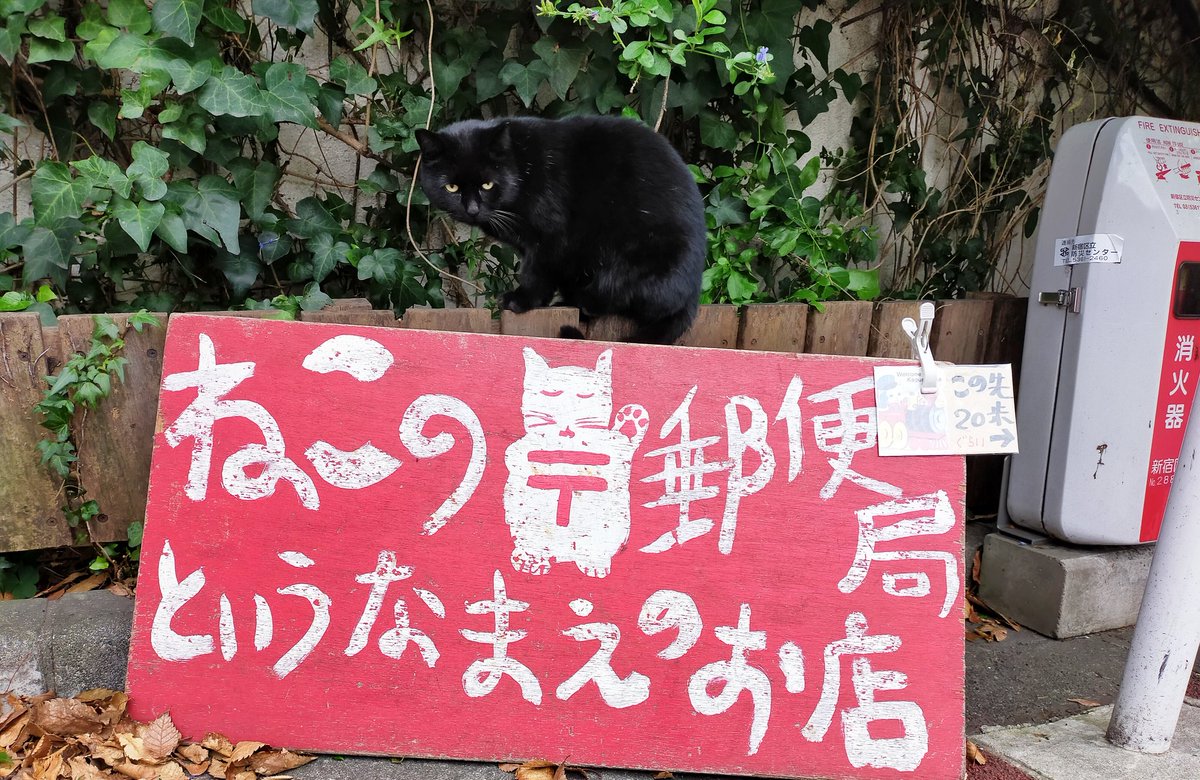 ねこの郵便局
というなまえのお店
この先
20歩
ぐらい
FIRE EXTINGUISHER
新宿区立
防災センター
消火器
新宿区